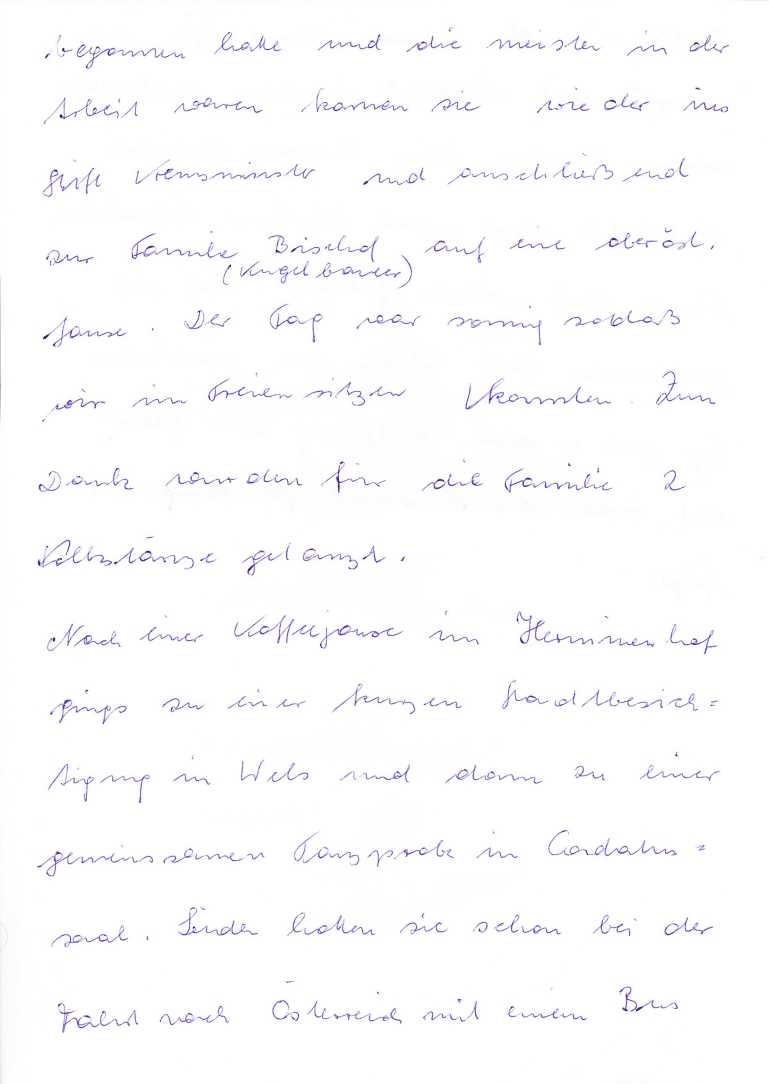 begonnen hatte und die meisten in der
Arbeit waren kamen sie wieder ins
Stift Kremsmünster und anschließend
zur Familie Bischof auf eine oberöst.
(Kugelbauer)
Jause. Der Tag war sonnig sodaß
wir im Freien sitzen konnten. Zum
Dank wurden für die Familie 2
Volkstänze getanzt.
Nach einer Kaffeejause im Herminenhof
gings zu einer kurzen Stadtbesich=
tigung in Wels und dann zu einer
gemeinsamen Tanzprobe in
saal. Leider hatten sie schon bei der
Fahrt nach Österreich mit einem Bus